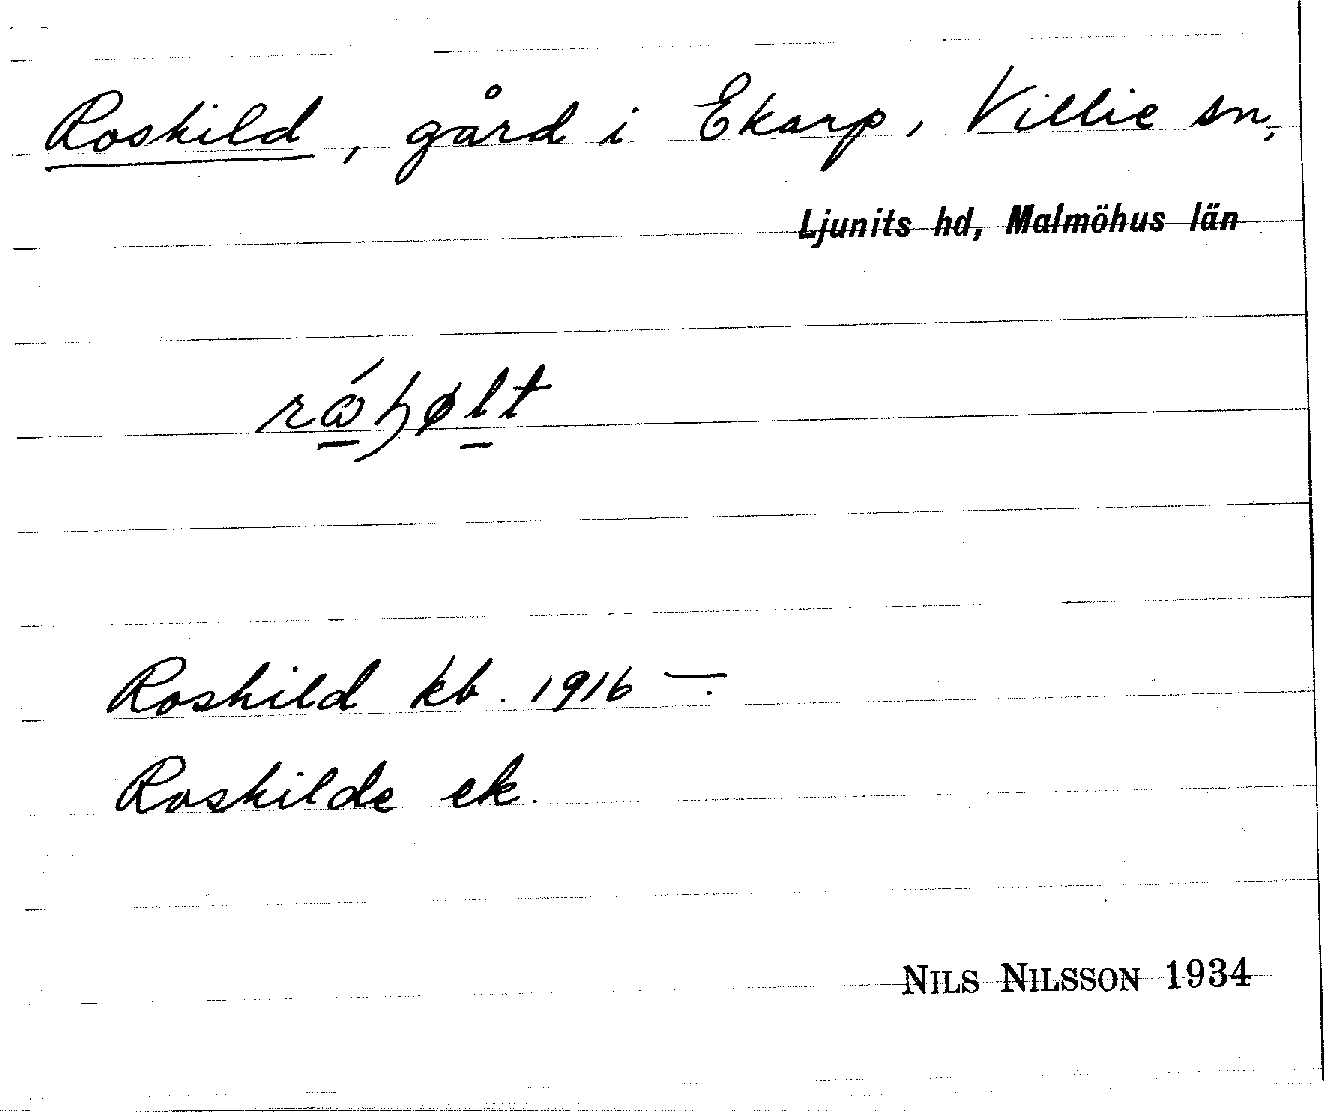 Roskild, gård i Ekarp, Villie sn,
Ljunits hd, Malmöhus län
Roskild kb. 1916 —.
Roskilde ek.
NILS NILSSON 1934